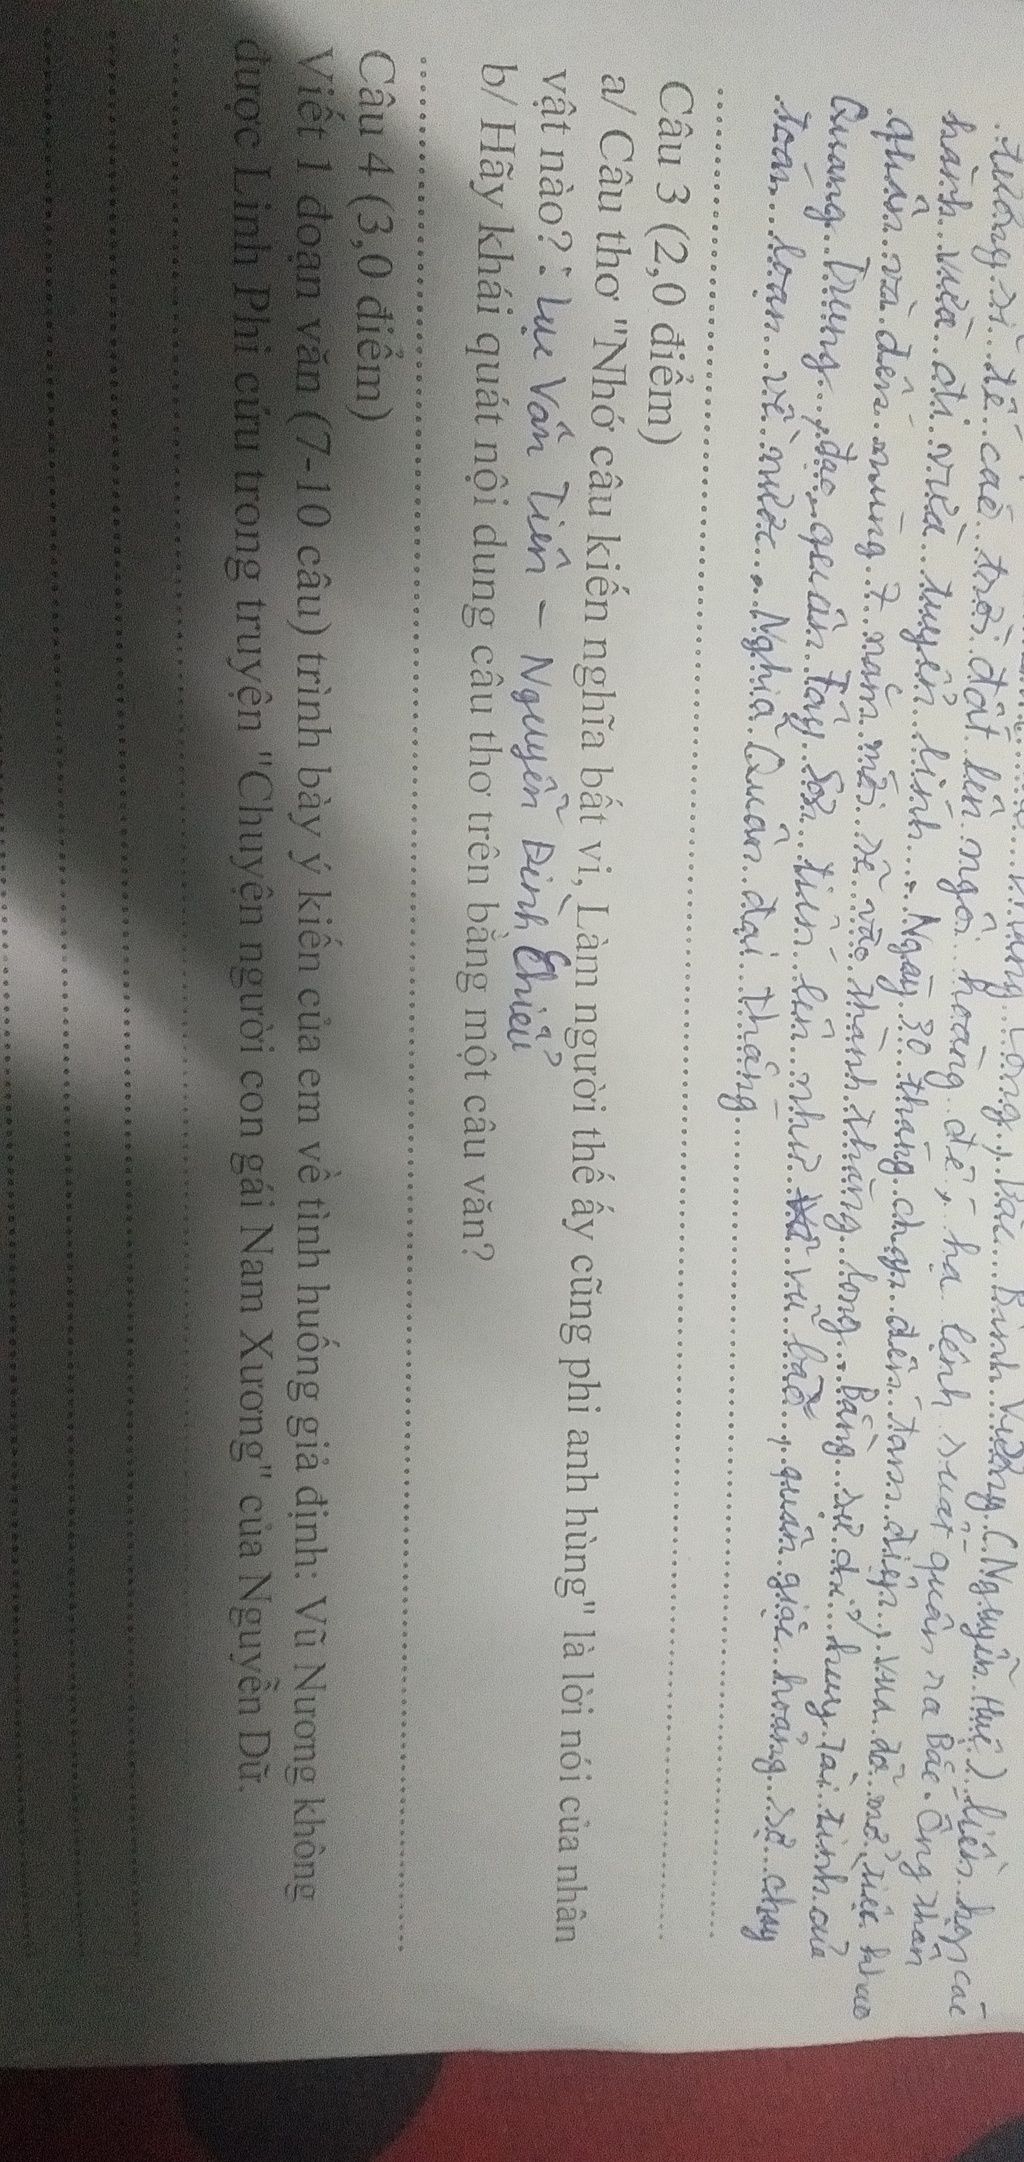 tướng sĩ tế cáo trời đất lên ngôi hoàng đế, hạ lệnh xuất quân ra Bắc. Ông thân
hành vừa đi vừa tuyển binh. Ngày 30 tháng chạp đến tam điệp, vua đã mở tiệc khao
quân và đến mùng 7 năm mới sẽ vào thành thăng long. Bằng sự
Quang Trung, đạo quân Tây Sơn tiến lên như vũ bão, quân giặc hoảng sợ chạy
toán loạn về nước. Nghĩa Quân đại thắng
Câu 3 (2,0 điểm)
a/ Câu thơ "Nhớ câu kiến nghĩa bất vi, Làm người thế ấy cũng phi anh hùng" là lời nói của nhân
vật nào? : Lục Vân Tiên – Nguyễn Đình Chiểu
b/ Hãy khái quát nội dung câu thơ trên bằng một câu văn?
Câu 4 (3,0 điểm)
Viết 1 đoạn văn (7-10 câu) trình bày ý kiến của em về tình huống giả định: Vũ Nương không
được Linh Phi cứu trong truyện "Chuyện người con gái Nam Xương" của Nguyễn Dữ.